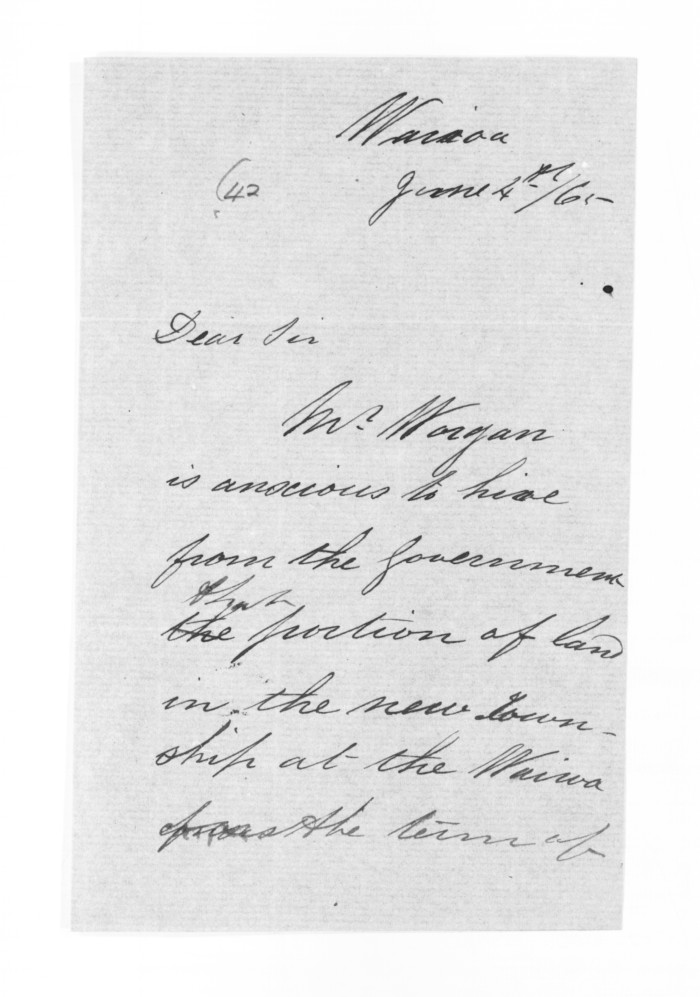 Wairoa
(42
June 4th/65
Dear Sir
Mr. Worgan
is anxious to hire
from the Government
that
the portion of land
in the new town-
ship at the Wairoa
the term of